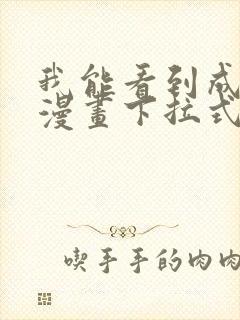 我能看到成
漫畫下拉式
喫手手的肉肉